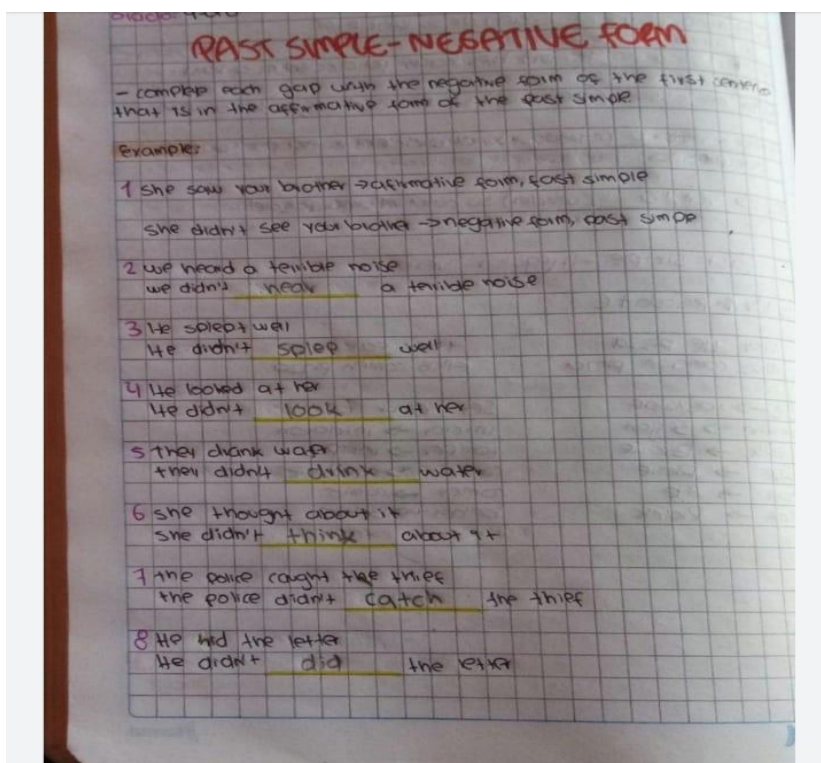 PAST SIMPLE-NEGATIVE FORM
- complep each gap with the negative form of the first
that is in the affirmative form of the past simple
Example:
1 she saw your brother → afirmative form, past simple
she didn't see your brother → negative form, past simpe
2 we heard a terrible noise
we didn't hear a terrible noise
3 He splept well
He didn't splep well
4 He looked at her
He didn't look at her
5 they drank water
they didn't drink water
6 she thought about it
she didn't think about it
7 the police caught the thief
the police didn't catch the thief
8 He hid the letter
He didn't did the letter